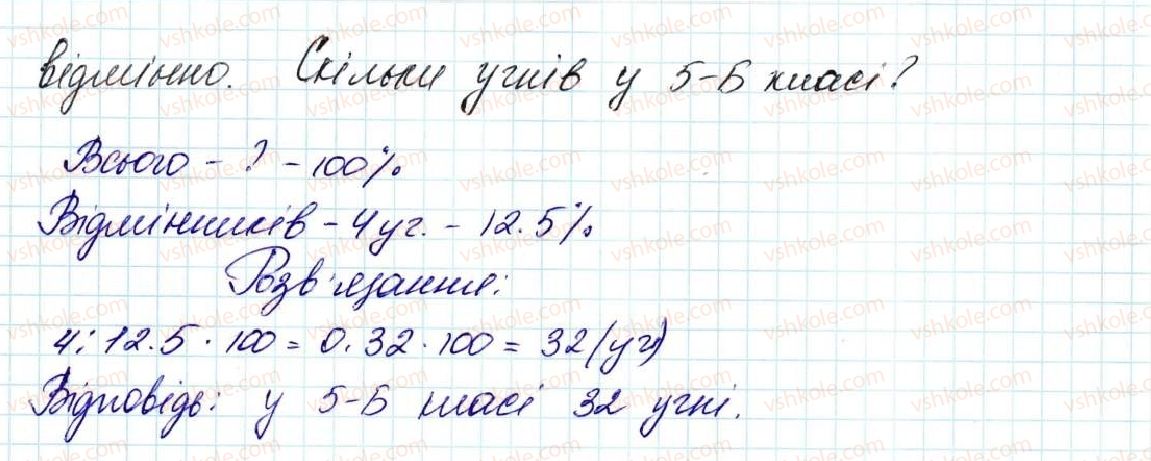 відмінно. Скільки учнів у 5-Б класі?
Всього - ? - 100%
Відмінників - 4 уч. - 12.5%
Розв'язання:
4 : 12.5 · 100 = 0.32 · 100 = 32 (уч)
Відповідь: у 5-Б класі 32 учні.